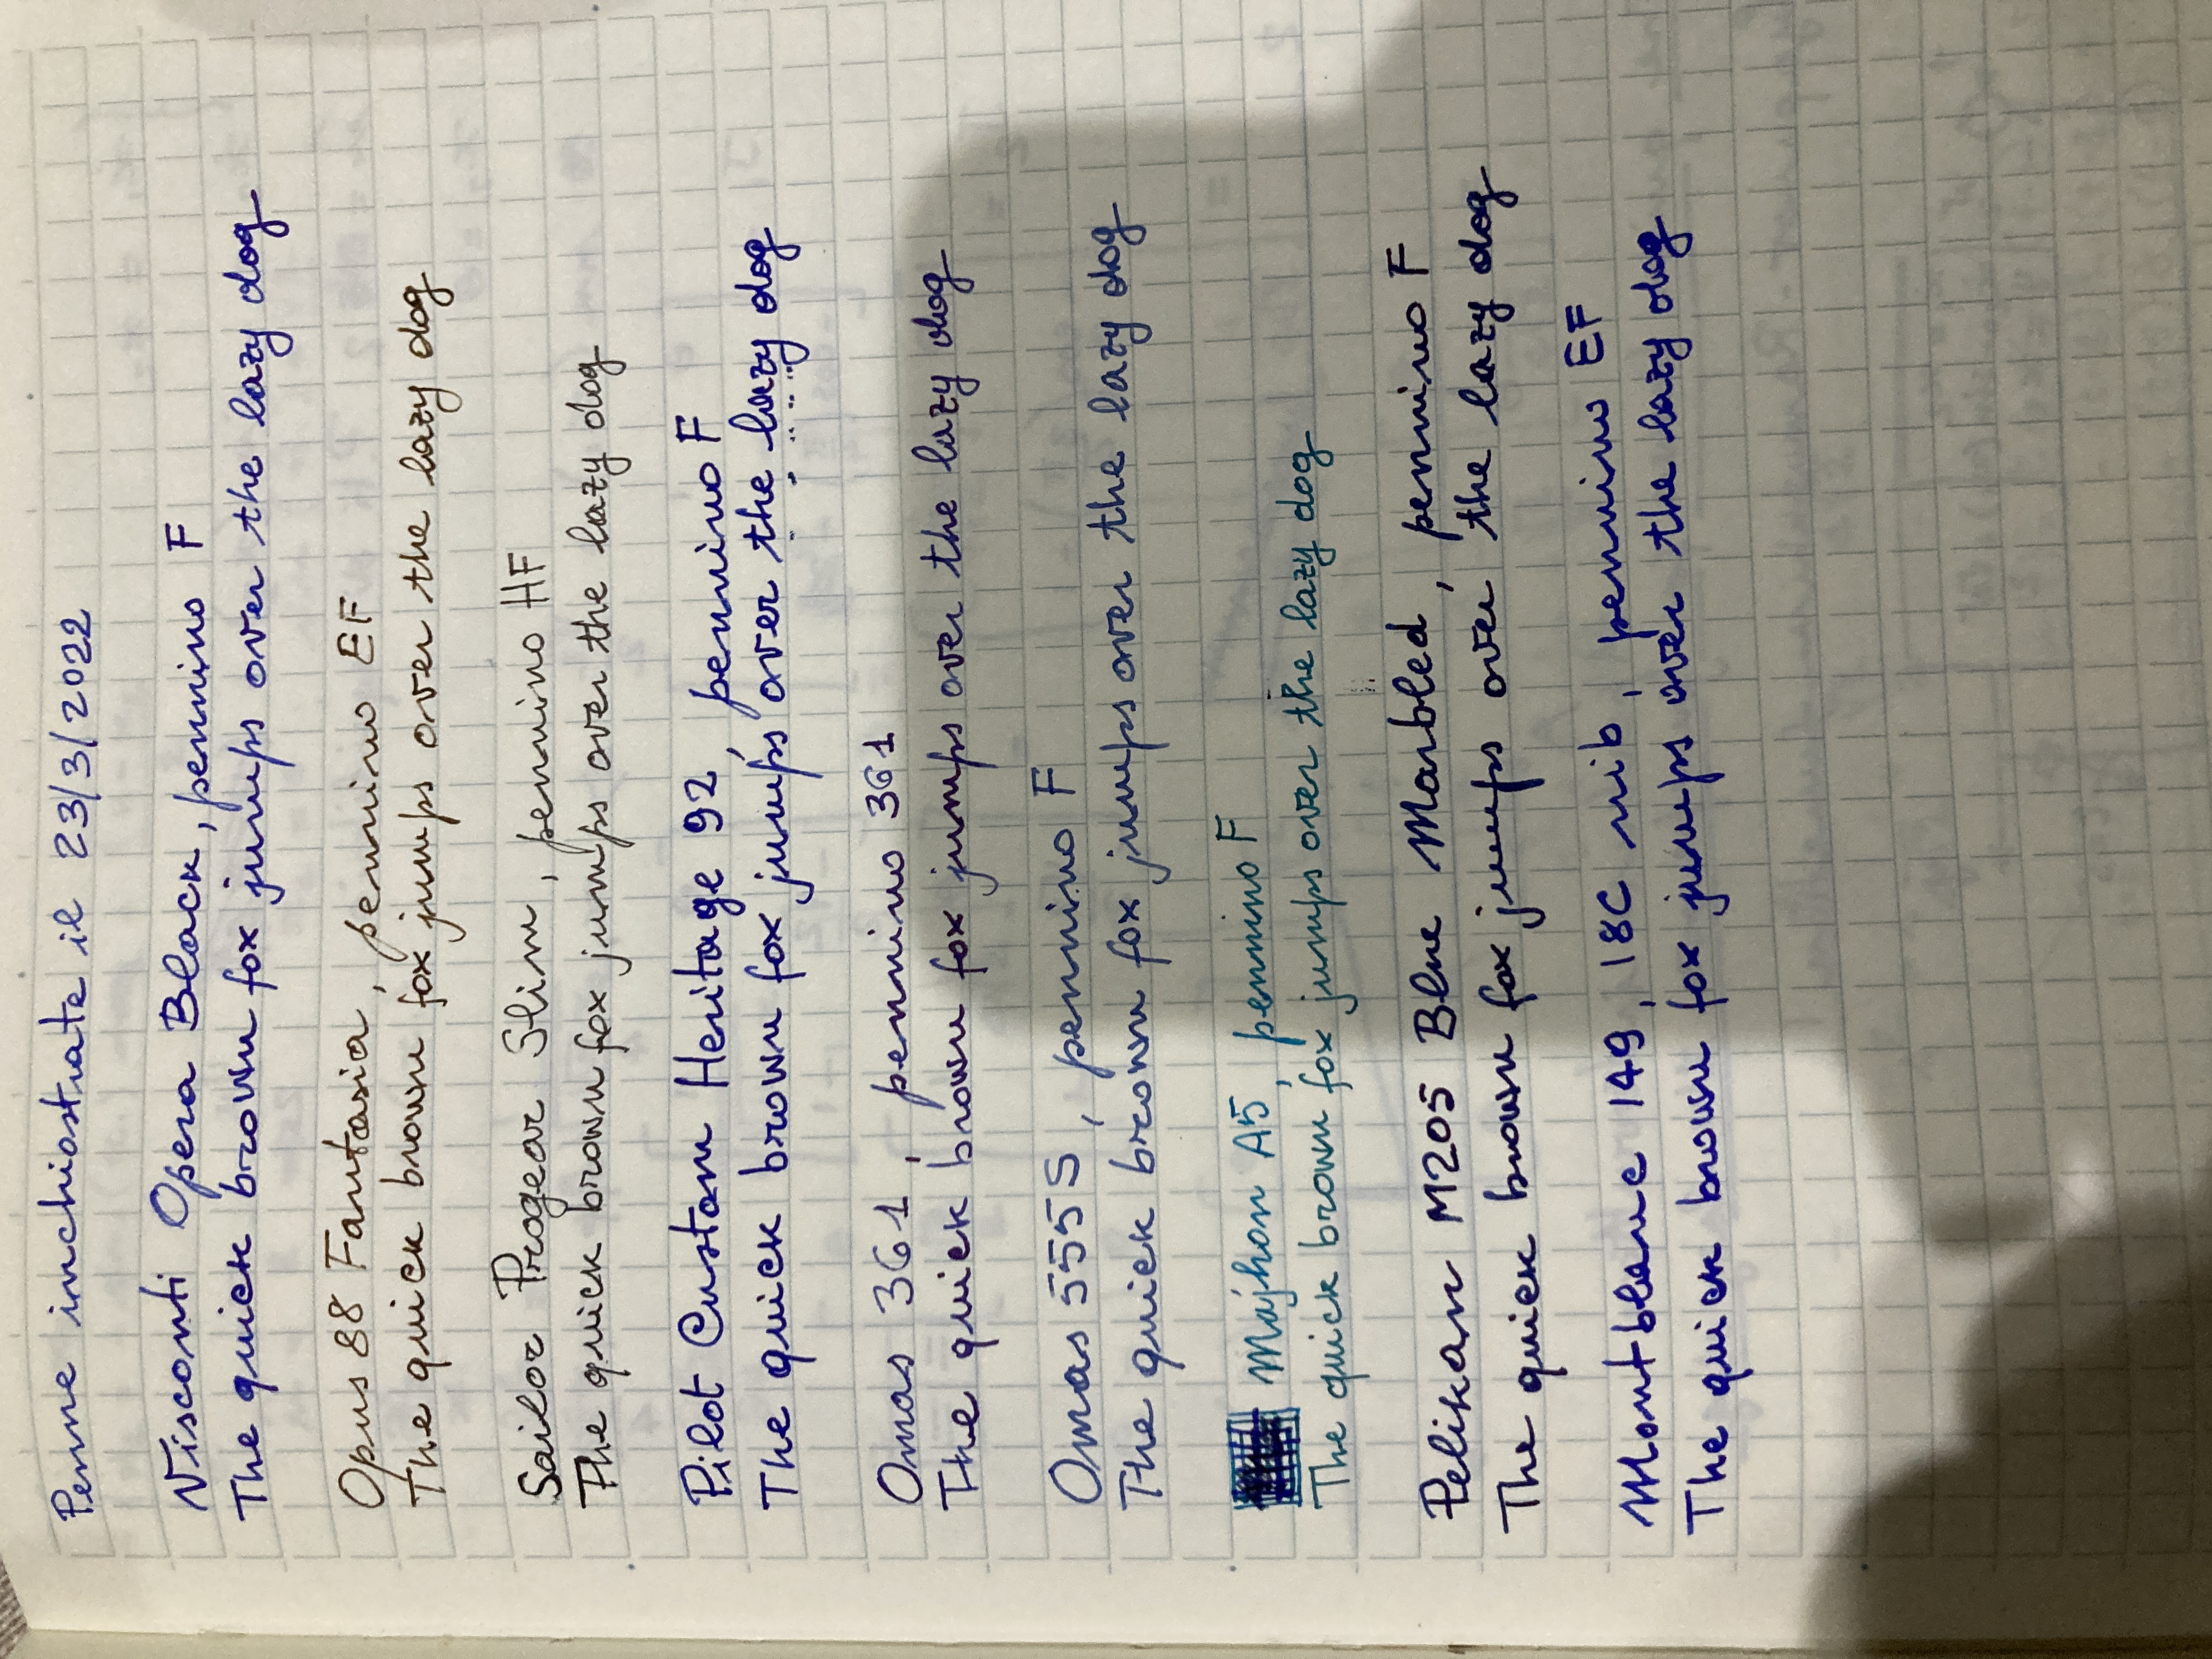 Penne inchiostrate il 23/3/2022
Visconti Opera Black, pennino F
The quick brown fox jumps over the lazy dog
Opus 88 Fantasia, pennino EF
The quick brown fox jumps over the lazy dog
Sailor Progear Slim, pennino HF
The quick brown fox jumps over the lazy dog
Pilot Custom Heritage 92, pennino F
The quick brown fox jumps over the lazy dog
Omas 361, pennino 361
The quick brown fox jumps over the lazy dog
Omas 555 S, pennino F
The quick brown fox jumps over the lazy dog
Majhon A5, pennino F
The quick brown fox jumps over the lazy dog
Pelikan M205 Blue Marbled, pennino F
The quick brown fox jumps over the lazy dog
Montblanc 149, 18C nib, pennino EF
The quick brown fox jumps over the lazy dog